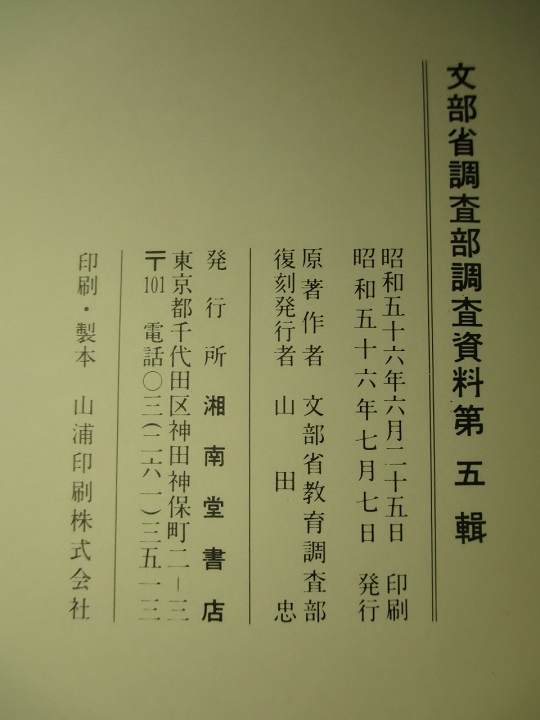 文部省調査部調査資料第五輯
昭和五十六年六月二十五日 印刷
昭和五十六年七月七日 発行
原著作者 文部省教育調査部
復刻発行者 山田 忠
発行所 湘南堂書店
東京都千代田区神田神保町二−三
〒101 電話〇三(二六一)三五一三
印刷・製本 山浦印刷株式会社